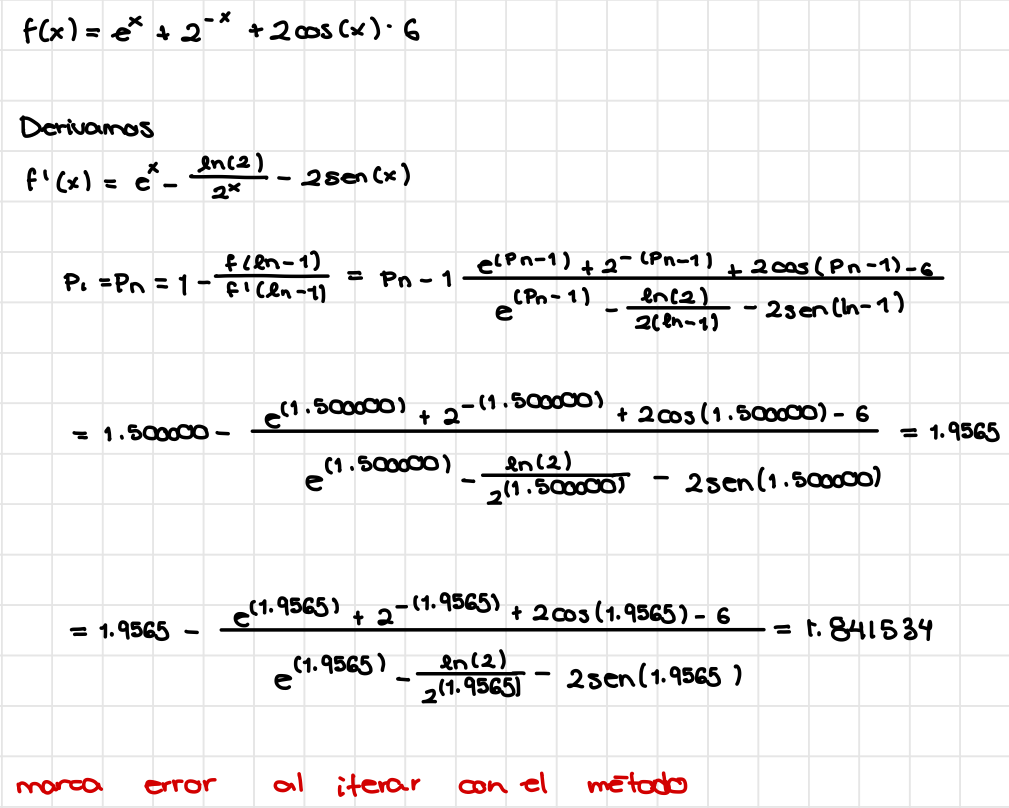 f(x) = e^x + 2^-x + 2cos(x) · 6
Derivamos
f'(x) = e^x - ln(2)/2^x - 2sen(x)
P₁ = Pn = 1 - f(ln-1)/f'(ln-1) = Pn - 1 (e^(Pn-1) + 2^-(Pn-1) + 2cos(Pn-1) - 6)/(e^(Pn-1) - ln(2)/2(ln-1) - 2sen(ln-1))
= 1.500000 - (e^(1.500000) + 2^-(1.500000) + 2cos(1.500000) - 6)/(e^(1.500000) - ln(2)/2^(1.500000) - 2sen(1.500000)) = 1.9565
= 1.9565 - (e^(1.9565) + 2^-(1.9565) + 2cos(1.9565) - 6)/(e^(1.9565) - ln(2)/2^(1.9565) - 2sen(1.9565)) = 1.841534
marca error al iterar con el método